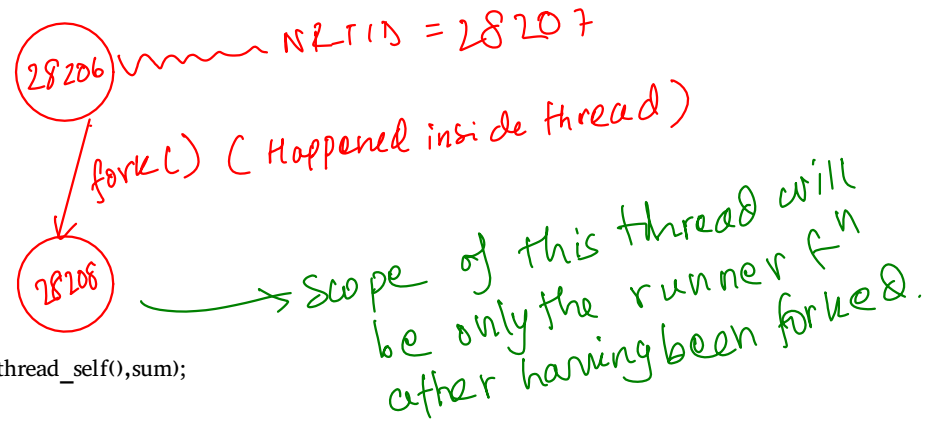 28206
NLTID = 28207
fork() ( Happened inside thread)
28208
Scope of this thread will
be only the runner fn
after having been forked.
thread_self(),sum);